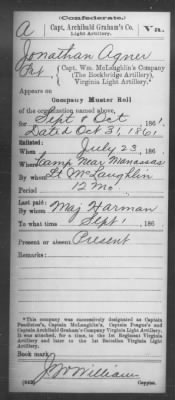 (Confederate.)
A Capt. Archibald Graham's Co. Va.
Light Artillery.
Jonathan Agner
Pvt, Capt. Wm. McLaughlin's Company
(The Rockbridge Artillery),
Virginia Light Artillery.*
Appears on
Company Muster Roll
of the organization named above,
for Sept & Oct, 1861.
Dated Oct 31, 1861
Enlisted:
When July 23, 186 .
Where Camp Near Manassas
By whom Lt McLaughlin
Period 12 mo
Last paid:
By whom Maj Harman
To what time Sept 1, 186 .
Present or absent Present
Remarks:
*This company was successively designated as Captain
Pendleton's, Captain McLaughlin's, Captain Poague's and
Captain Archibald Graham's Company Virginia Light Artillery.
It was attached, for a time, to the 1st Regiment Virginia
Artillery and later to the 1st Battalion Virginia Light
Artillery.
Book mark:
J W William
(642) Copyist.